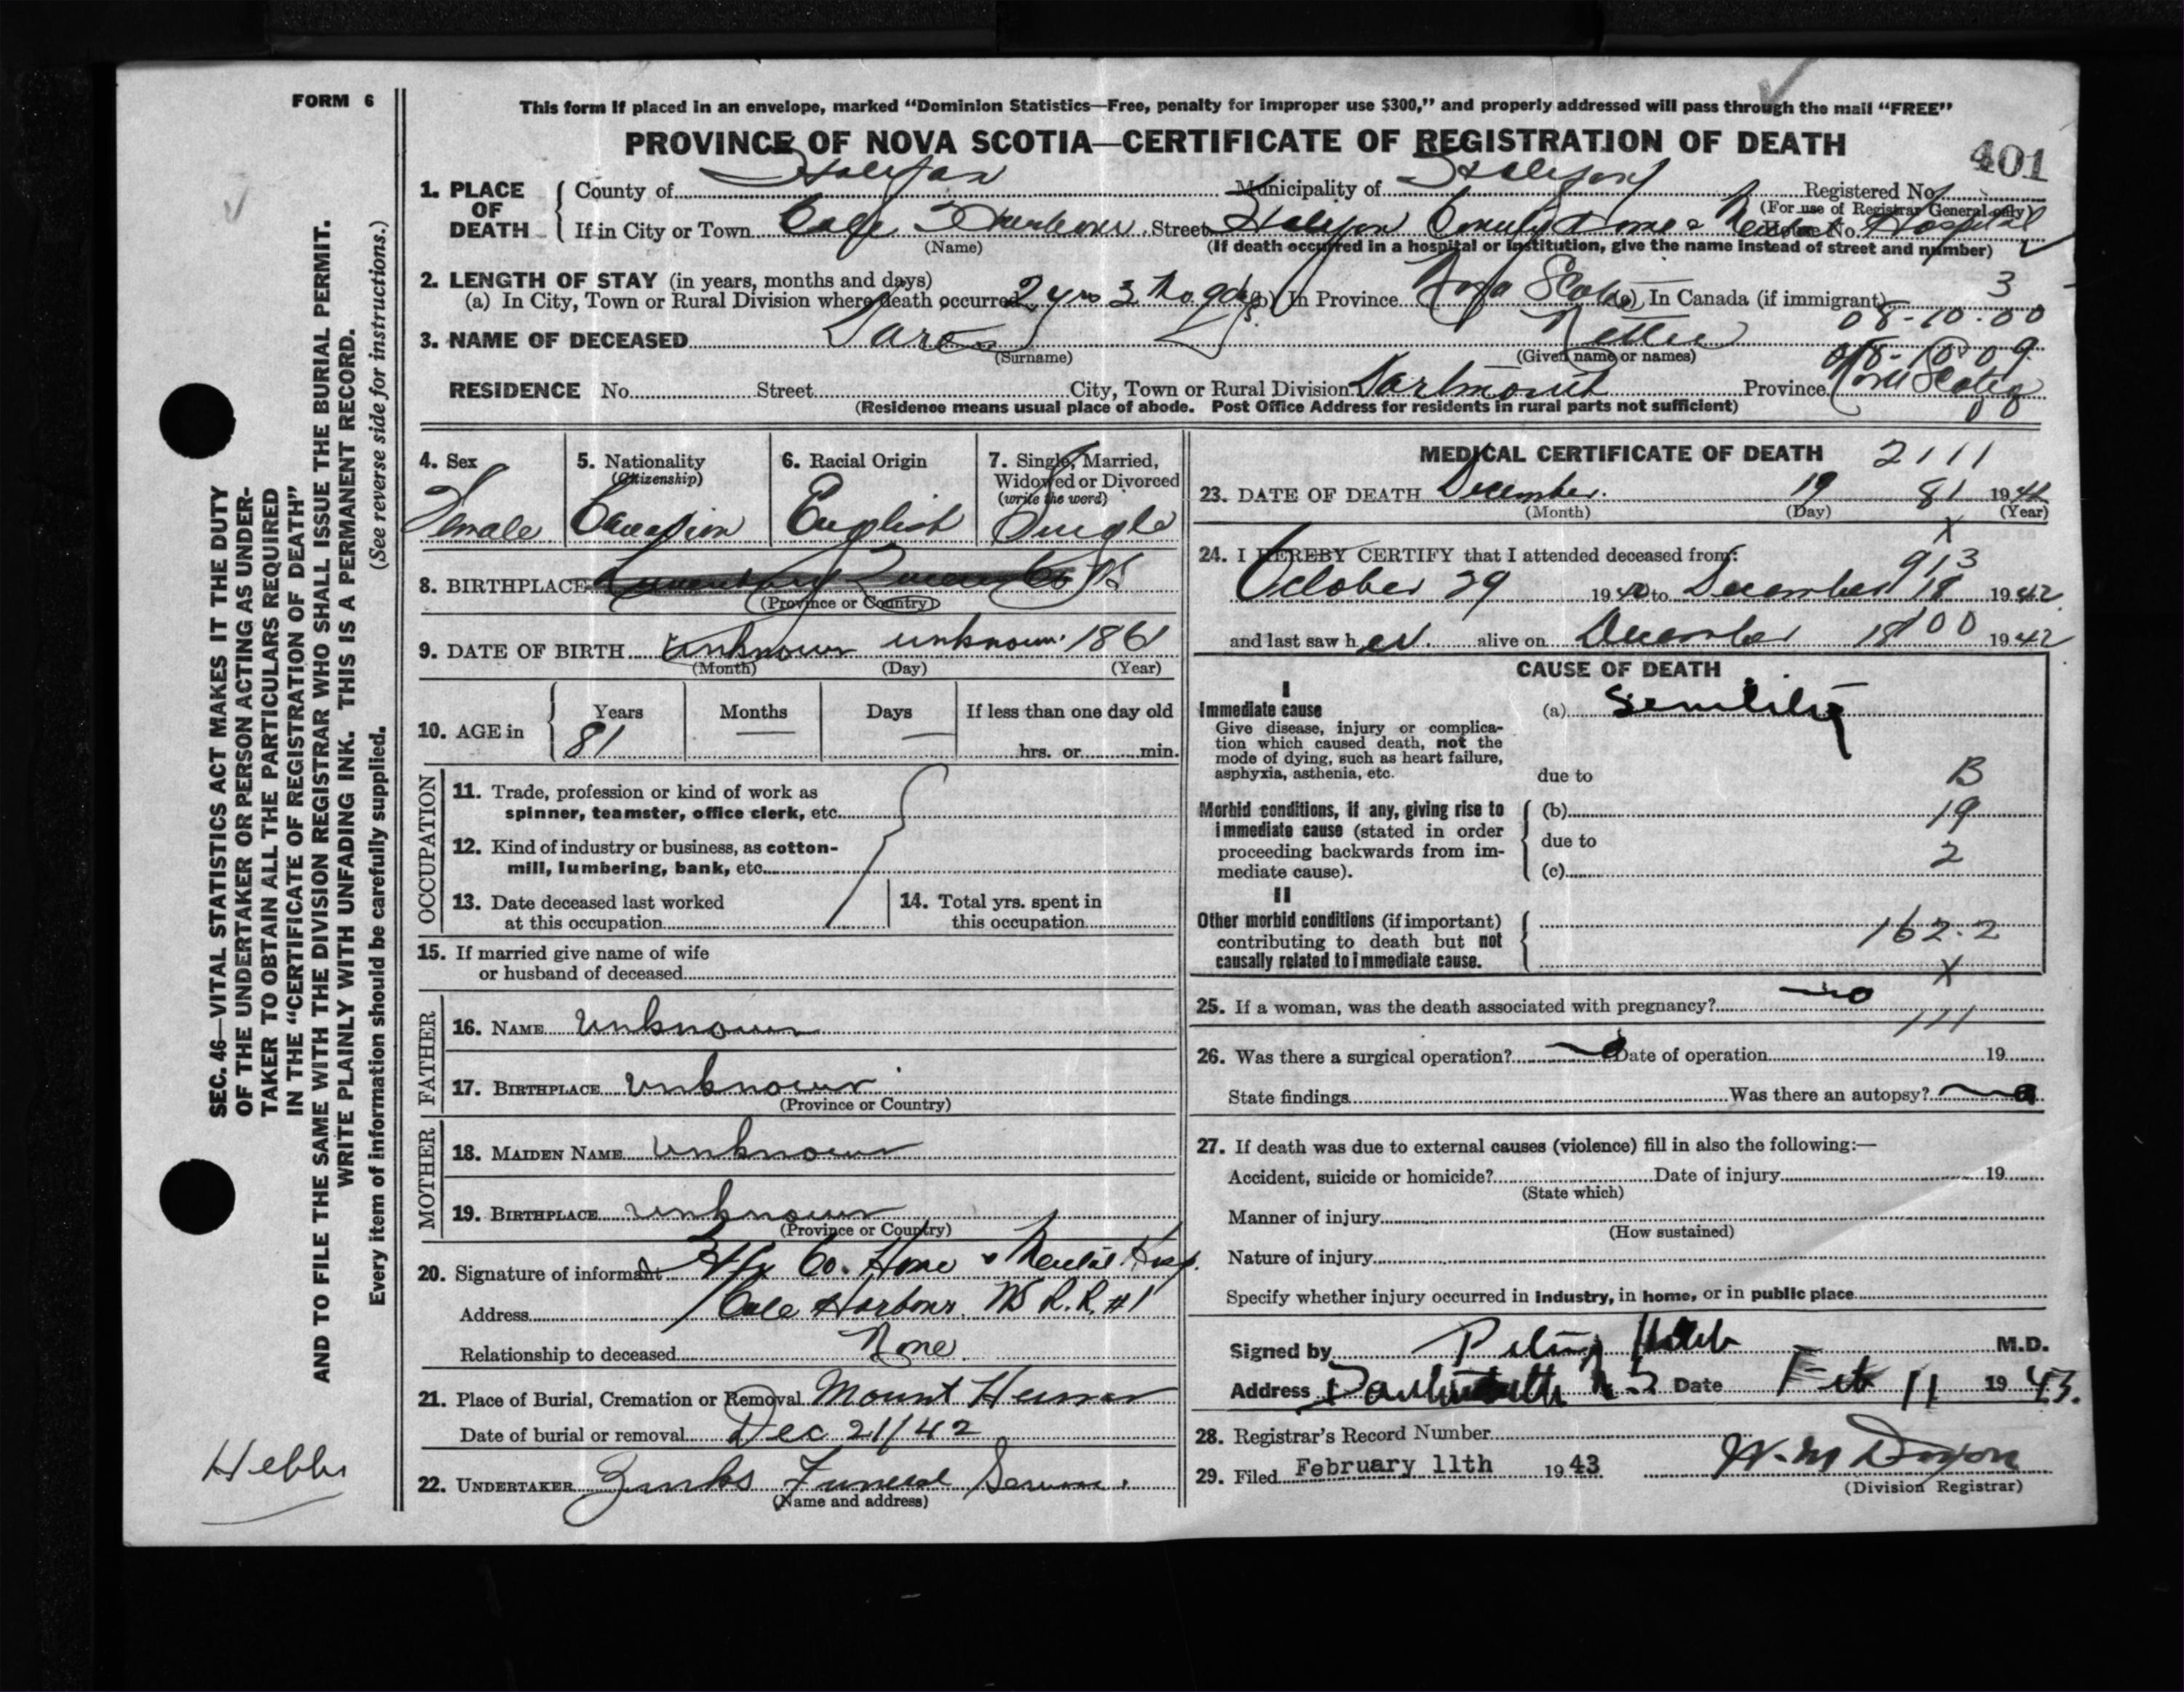 FORM 6
This form if placed in an envelope, marked “Dominion Statistics—Free, penalty for improper use $300,” and properly addressed will pass through the mail “FREE”
PROVINCE OF NOVA SCOTIA—CERTIFICATE OF REGISTRATION OF DEATH
401
1. PLACE OF DEATH
County of Halifax Municipality of Halifax Registered No.
(For use of Registrar General only)
If in City or Town Cole Harbour Street Halifax County Home & Mental Hospital House No.
(Name) (If death occurred in a hospital or institution, give the name instead of street and number)
2. LENGTH OF STAY (in years, months and days)
(a) In City, Town or Rural Division where death occurred 2 yrs 3 mo 9 dys (b) In Province Nova Scotia (c) In Canada (if immigrant) 3
08-10-00
3. NAME OF DECEASED Nellie
(Surname) (Given name or names)
08-10-09
RESIDENCE No. Street City, Town or Rural Division Dartmouth Province Nova Scotia
(Residence means usual place of abode. Post Office Address for residents in rural parts not sufficient)
00
4. Sex Female
5. Nationality (Citizenship) Canadian
6. Racial Origin English
7. Single, Married, Widowed or Divorced (write the word) Single
8. BIRTHPLACE NS
(Province or Country)
9. DATE OF BIRTH unknown unknown 1861
(Month) (Day) (Year)
10. AGE in Years 81 Months — Days — If less than one day old
hrs. or min.
OCCUPATION
11. Trade, profession or kind of work as
spinner, teamster, office clerk, etc.
12. Kind of industry or business, as cotton-
mill, lumbering, bank, etc.
13. Date deceased last worked
at this occupation
14. Total yrs. spent in
this occupation
15. If married give name of wife
or husband of deceased
FATHER
16. NAME Unknown
17. BIRTHPLACE Unknown
(Province or Country)
MOTHER
18. MAIDEN NAME Unknown
19. BIRTHPLACE Unknown
(Province or Country)
20. Signature of informant Hfx Co. Home & Mental Hosp.
Address Cole Harbour, NS R.R. #1
Relationship to deceased None
21. Place of Burial, Cremation or Removal Mount Hermon
Date of burial or removal Dec 21/42
22. UNDERTAKER Zinks Funeral Service
(Name and address)
MEDICAL CERTIFICATE OF DEATH 2111
23. DATE OF DEATH December 19 81 1942
(Month) (Day) (Year)
X
24. I HEREBY CERTIFY that I attended deceased from:
913
October 29 1940 to December 18 1942
and last saw her alive on December 18 100 1942
CAUSE OF DEATH
I
Immediate cause
Give disease, injury or complica-
tion which caused death, not the
mode of dying, such as heart failure,
asphyxia, asthenia, etc.
(a) Senility
due to
B
Morbid conditions, if any, giving rise to
immediate cause (stated in order
proceeding backwards from im-
mediate cause).
(b) 19
due to
2
(c)
II
Other morbid conditions (if important)
contributing to death but not
causally related to immediate cause.
162.2
X
25. If a woman, was the death associated with pregnancy? no
111
26. Was there a surgical operation? no Date of operation 19
State findings Was there an autopsy? no
27. If death was due to external causes (violence) fill in also the following:—
Accident, suicide or homicide? Date of injury 19
(State which)
Manner of injury
(How sustained)
Nature of injury
Specify whether injury occurred in industry, in home, or in public place
Signed by M.D.
Address Dartmouth N S Date Feb 11 1943.
28. Registrar's Record Number
29. Filed February 11th 1943 W. M. Dixon
(Division Registrar)
SEC. 46—VITAL STATISTICS ACT MAKES IT THE DUTY
OF THE UNDERTAKER OR PERSON ACTING AS UNDER-
TAKER TO OBTAIN ALL THE PARTICULARS REQUIRED
IN THE “CERTIFICATE OF REGISTRATION OF DEATH”
AND TO FILE THE SAME WITH THE DIVISION REGISTRAR WHO SHALL ISSUE THE BURIAL PERMIT.
WRITE PLAINLY WITH UNFADING INK. THIS IS A PERMANENT RECORD.
Every item of information should be carefully supplied. (See reverse side for instructions.)